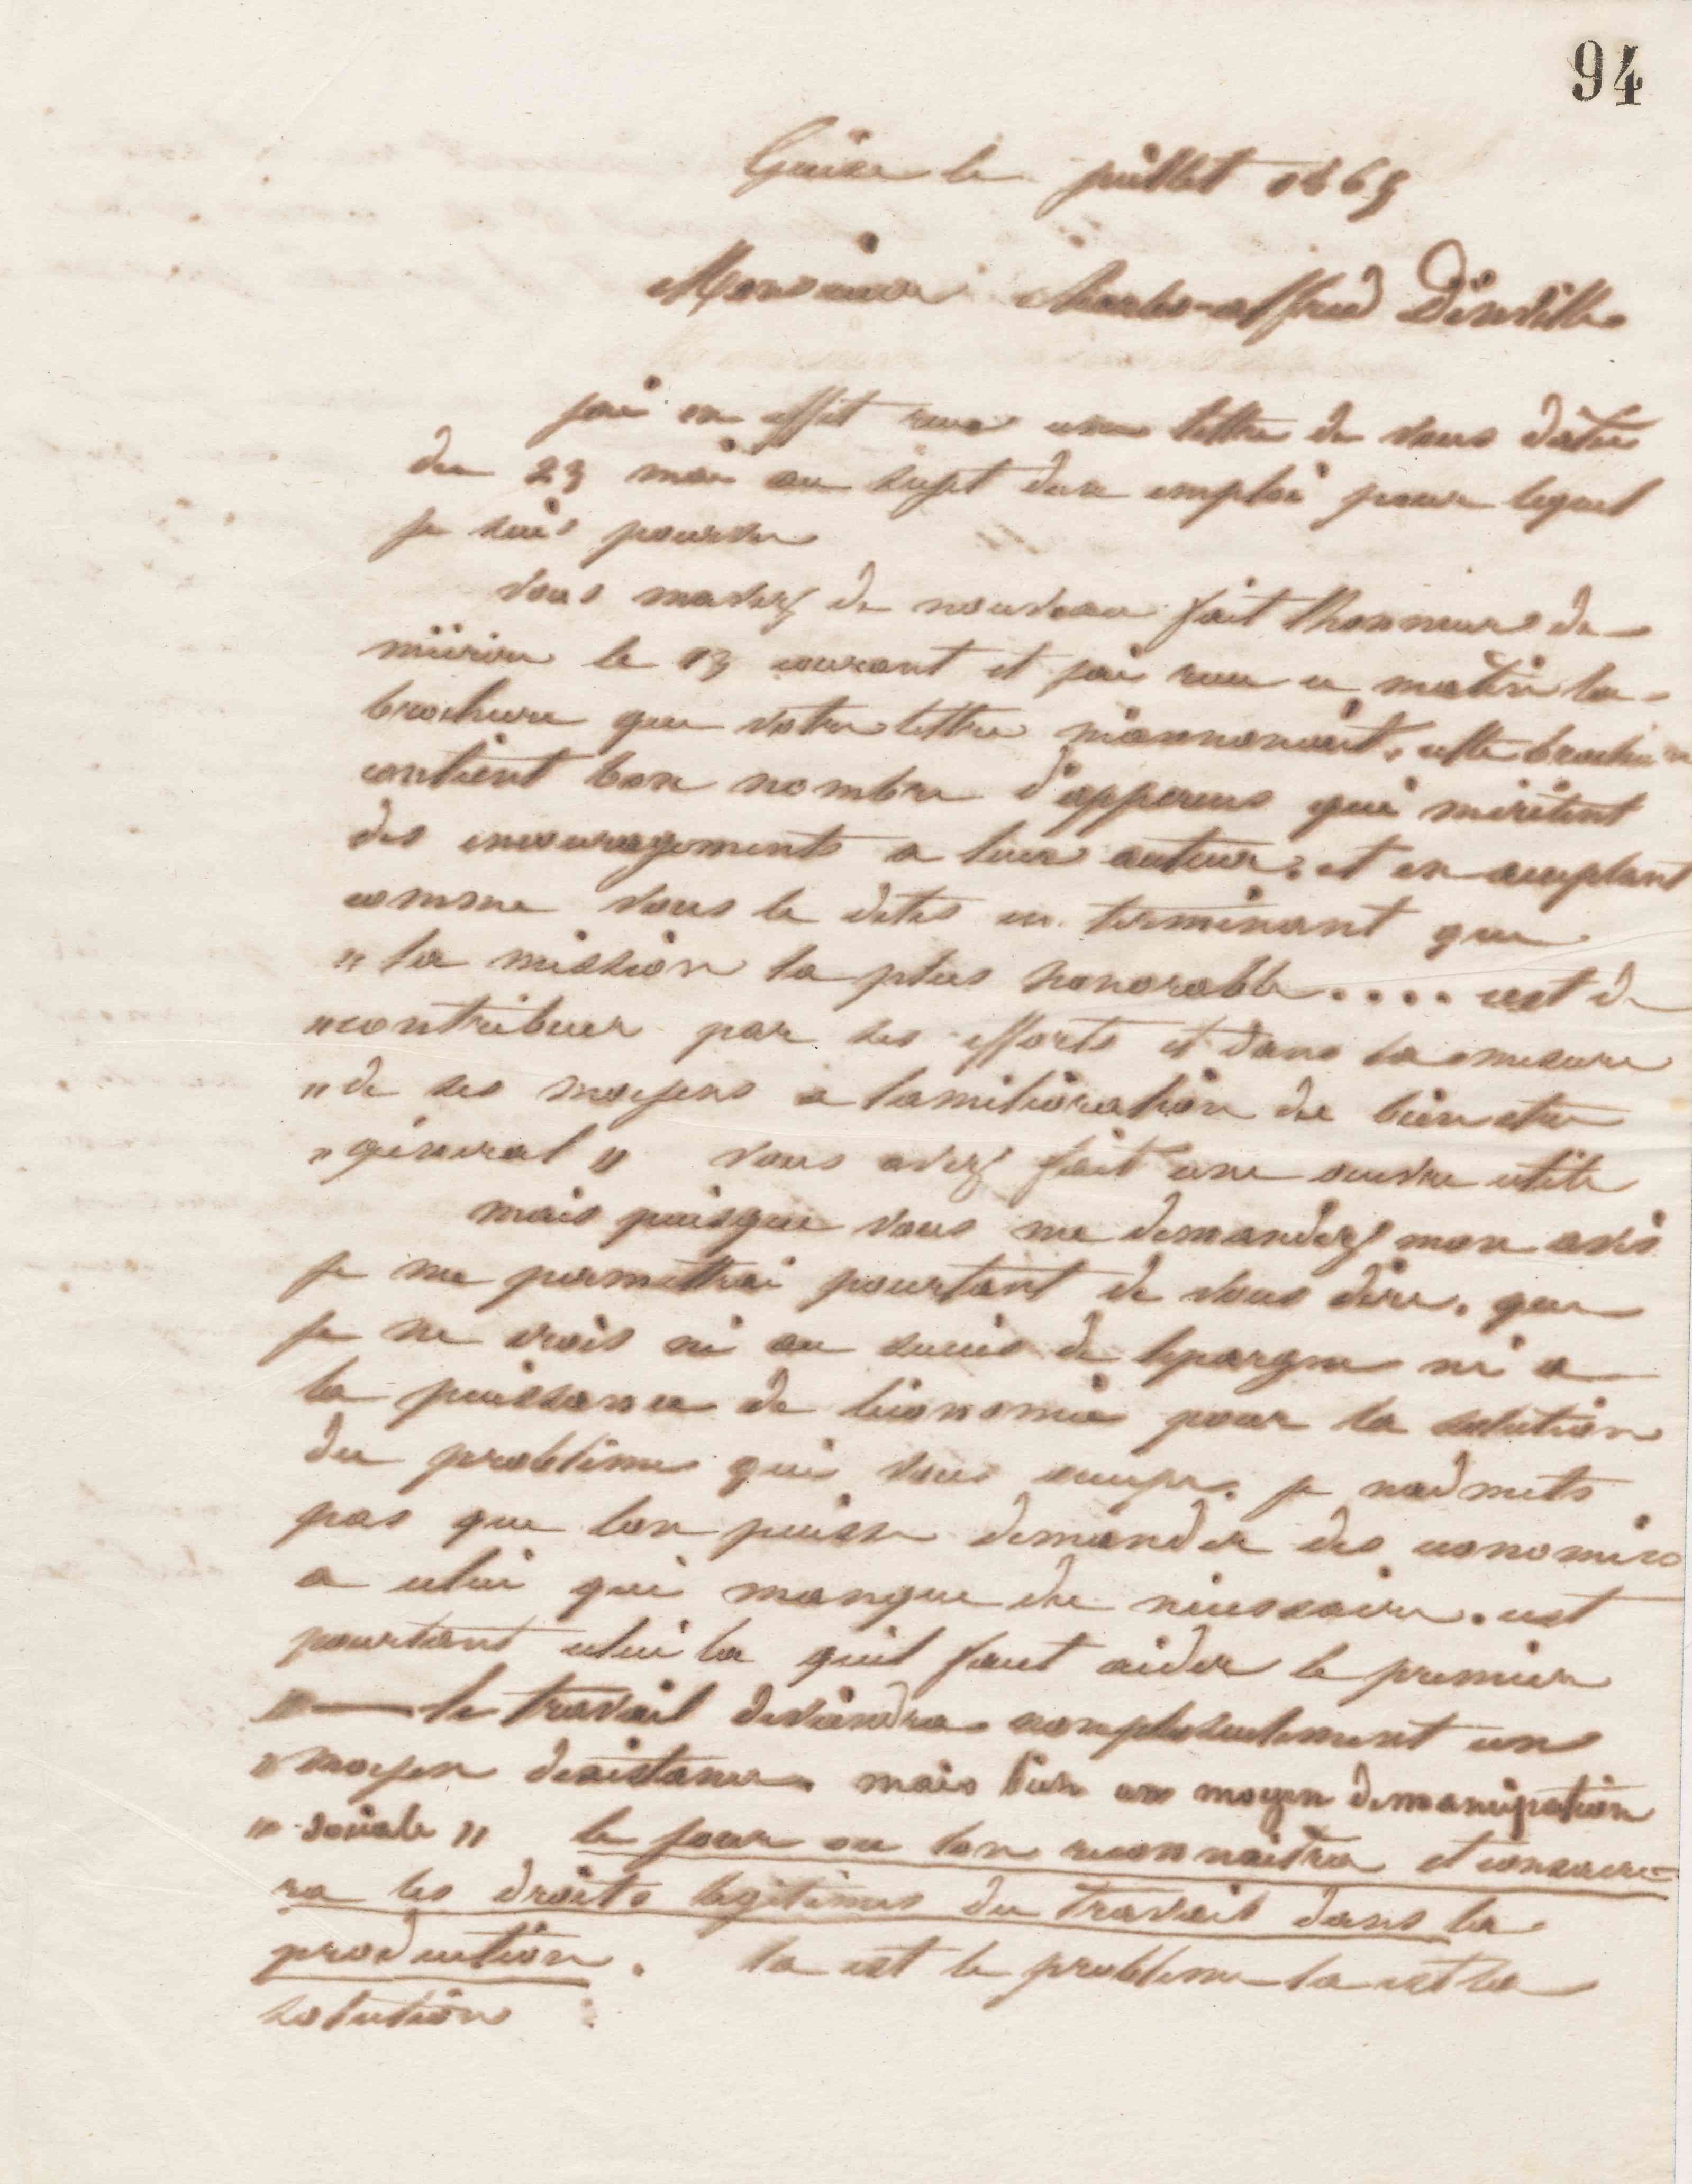 94
Guise le juillet 1865
Monsieur Charles-alfred
jai en effet recu une lettre de vous datée
du 23 mai au sujet dun emploi pour lequel
je suis pourvu
vous mavez de nouveau fait lhonneur de
mécrire le 13 courant et jai recu ce matin la
brochure que votre lettre mannoncait. cette brochure
contient bon nombre d'appercus qui méritent
des encouragements a leur auteur. et en acceptant
comme vous le dites en terminant que
" la mission la plus honorable .... cest de
" contribuer par ses efforts et dans la mesure
" de ses moyens a lamélioration du bien etre
" général " vous avez fait une oeuvre utile
mais puisque vous me demandez mon avis
je me permettrai pourtant de vous dire. que
je ne crois ni au succès de lepargne ni a
la puissance de léconomie pour la solution
du problème qui vous occupe. je nadmets
pas que lon puisse demander des economies
a celui qui manque du nécessaire. cest
pourtant celui la quil faut aider le premier
" — le travail deviendra non plus seulement un
" moyen dexistance. mais bien un moyen demancipation
" sociale " le jour ou lon reconnaitra et consacre-
ra les droits legitimes du travail dans la
production. la est le problème la est la
solution